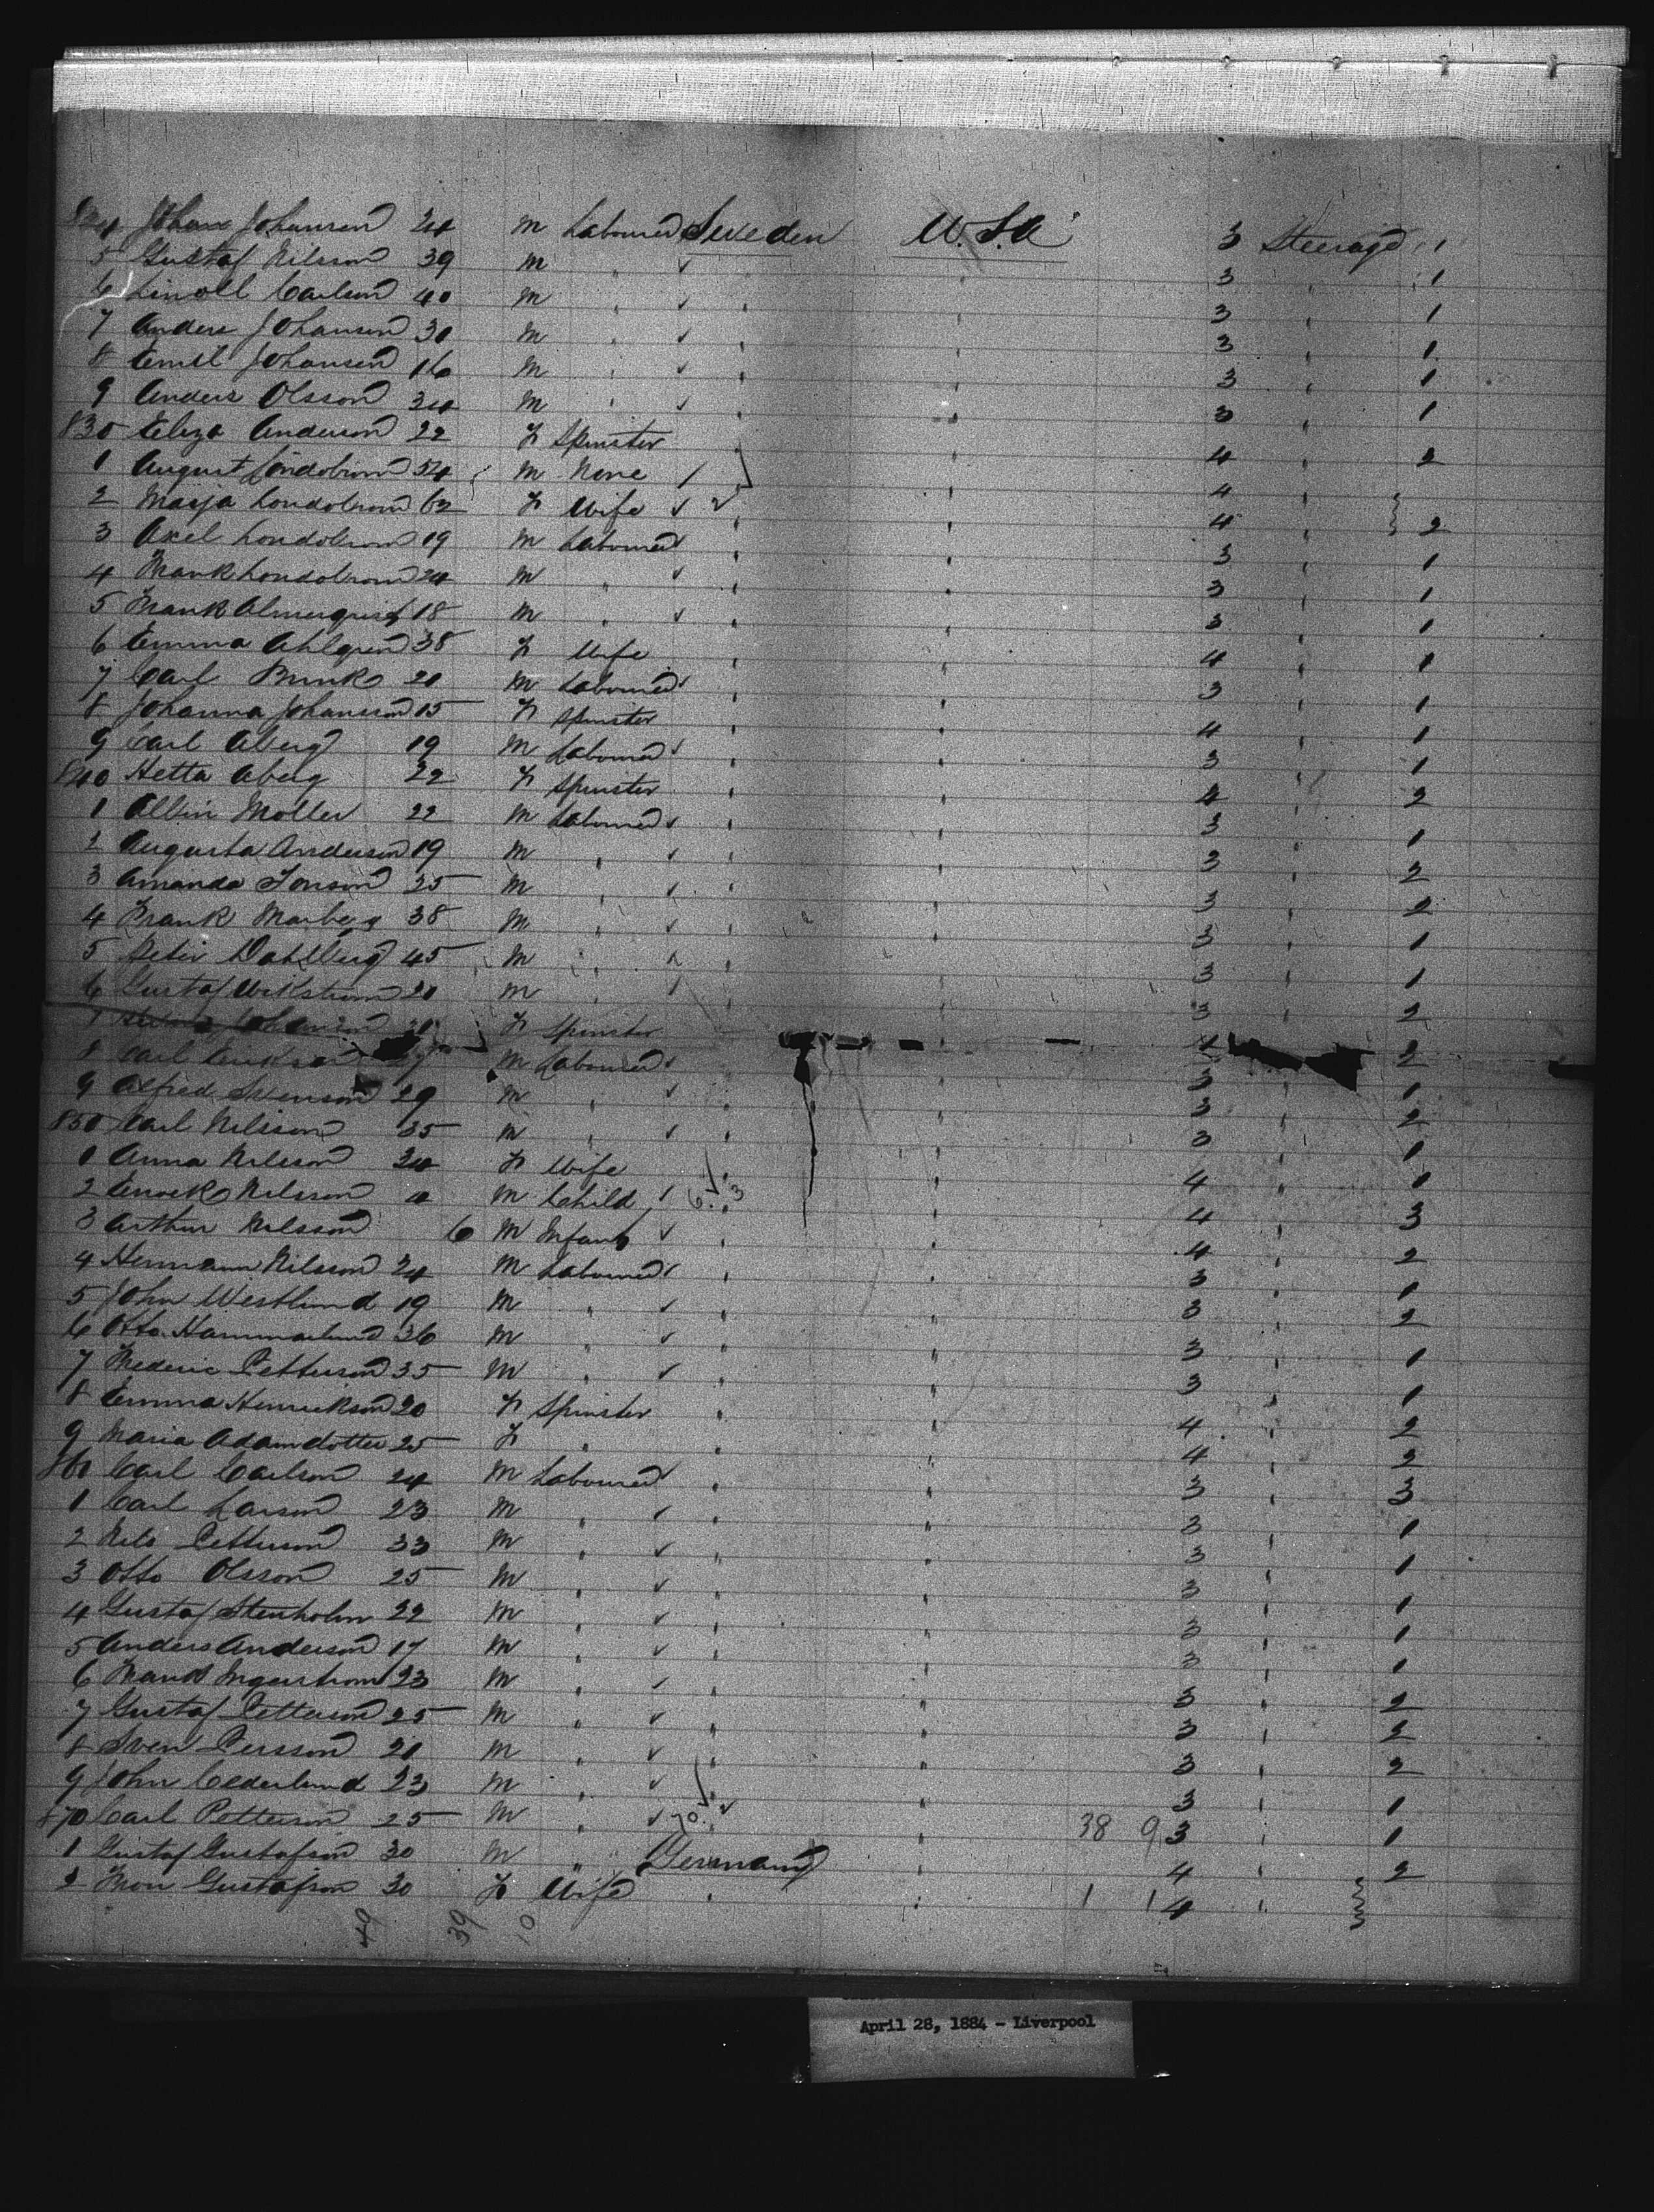 824 Johan Johanson 24 M Labourer Sweden U.S.A 3 Steerage 1
5 Gustaf Nilsson 39 M " " " 3 " 1
6 Carlson 40 M " " " 3 " 1
7 Anders Johanson 30 M " " " 3 " 1
8 Emil Johanson 16 M " " " 3 " 1
9 Anders Olsson 34 M " " " 3 " 1
830 Eliza Anderson 22 F Spinster " " 4 " 2
1 August 54 M None " " 4
2 Maija Londobrom 62 F Wife 2 " " 4 " 2
3 Axel Londobrom 19 M Labourer " " 3 " 1
4 Frank Londobrom 24 M " " " 3 " 1
5 Frank Almerquist 18 M " " " 3 " 1
6 Emma Ahlgren 38 F Wife " " 4 " 1
7 Carl Brink 20 M Labourer " " 3 " 1
8 Johanna Johansson 15 F Spinster " " 4 " 1
9 Carl Aberg 19 M Labourer " " 3 " 1
840 Hetta Aberg 22 F Spinster " " 4 " 2
1 Albin Moller 22 M Labourer " " 3 " 1
2 Augusta Anderson 19 M " " " 3 " 2
3 Amanda Jonson 25 M " " " 3 " 2
4 Frank Marberg 38 M " " " 3 " 1
5 Peter Dahlberg 45 M " " " 3 " 1
6 Gustaf Wikstrom 20 M " " " 3 " 2
7 Johanson F Spinster 4 2
8 Carl Erikson 27 M Labourer 3 1
9 Alfred Svenson 29 M " " " 3 2
850 Carl Nilsson 35 M " " " 3 1
1 Anna Nilsson 34 F Wife " " 4 1
2 Enock Nilsson 4 M Child 6 3 " 4 3
3 Arthur Nilsson 6 M Infant " " 4 " 2
4 Hermann Nilsson 24 M Labourer " " 3 " 1
5 John Westlund 19 M " " " 3 " 2
6 Otto Hammarlund 36 M " " " 3 " 1
7 Frederic Petterson 35 M " " " 3 " 1
8 Emma Henrickson 20 F Spinster " " 4 " 2
9 Maria Adamdotter 25 F " " " 4 " 2
860 Carl Carlson 24 M Labourer " " 3 " 3
1 Carl Larson 23 M " " " 3 " 1
2 Nils Petterson 33 M " " " 3 " 1
3 Otto Olsson 25 M " " " 3 " 1
4 Gustaf Stenholm 22 M " " " 3 " 1
5 Anders Anderson 17 M " " " 3 " 1
6 Frank Ingerstrom 23 M " " " 3 " 2
7 Gustaf Petterson 25 M " " " 3 " 2
8 Sven Persson 20 M " " " 3 " 2
9 John Cederlund 23 M " " " 3 " 1
870 Carl Petterson 25 M " 70 " 38 9 3 " 1
1 Gustaf Gustafson 30 M " Germany " 4 " 2
2 Gustafson 30 F Wife " " 1 1 4 "
49 39 10
April 28, 1884 - Liverpool